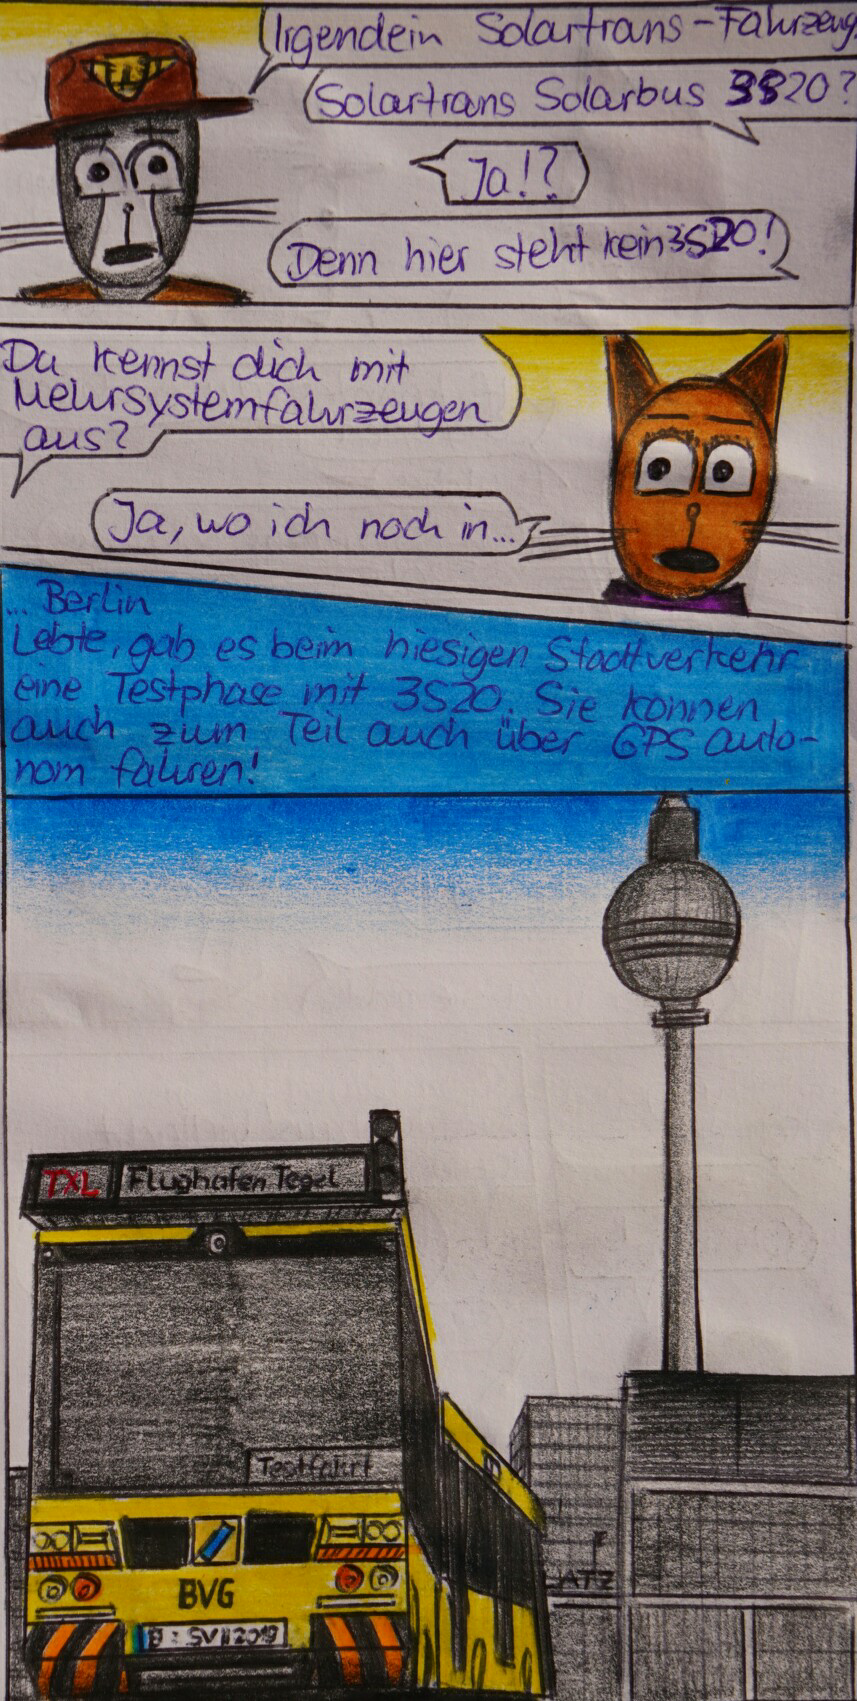 Irgendein Solartrans-Fahrzeug.
Solartrans Solarbus 3S20?
Ja!?
Denn hier steht kein 3S20!
Du kennst dich mit
Mehrsystemfahrzeugen
aus?
Ja, wo ich noch in...
... Berlin
Lebte, gab es beim hiesigen Stadtverkehr
eine Testphase mit 3S20. Sie können
auch zum Teil auch über GPS auto-
nom fahren!
TXL Flughafen Tegel
Testfahrt
BVG
LATZ